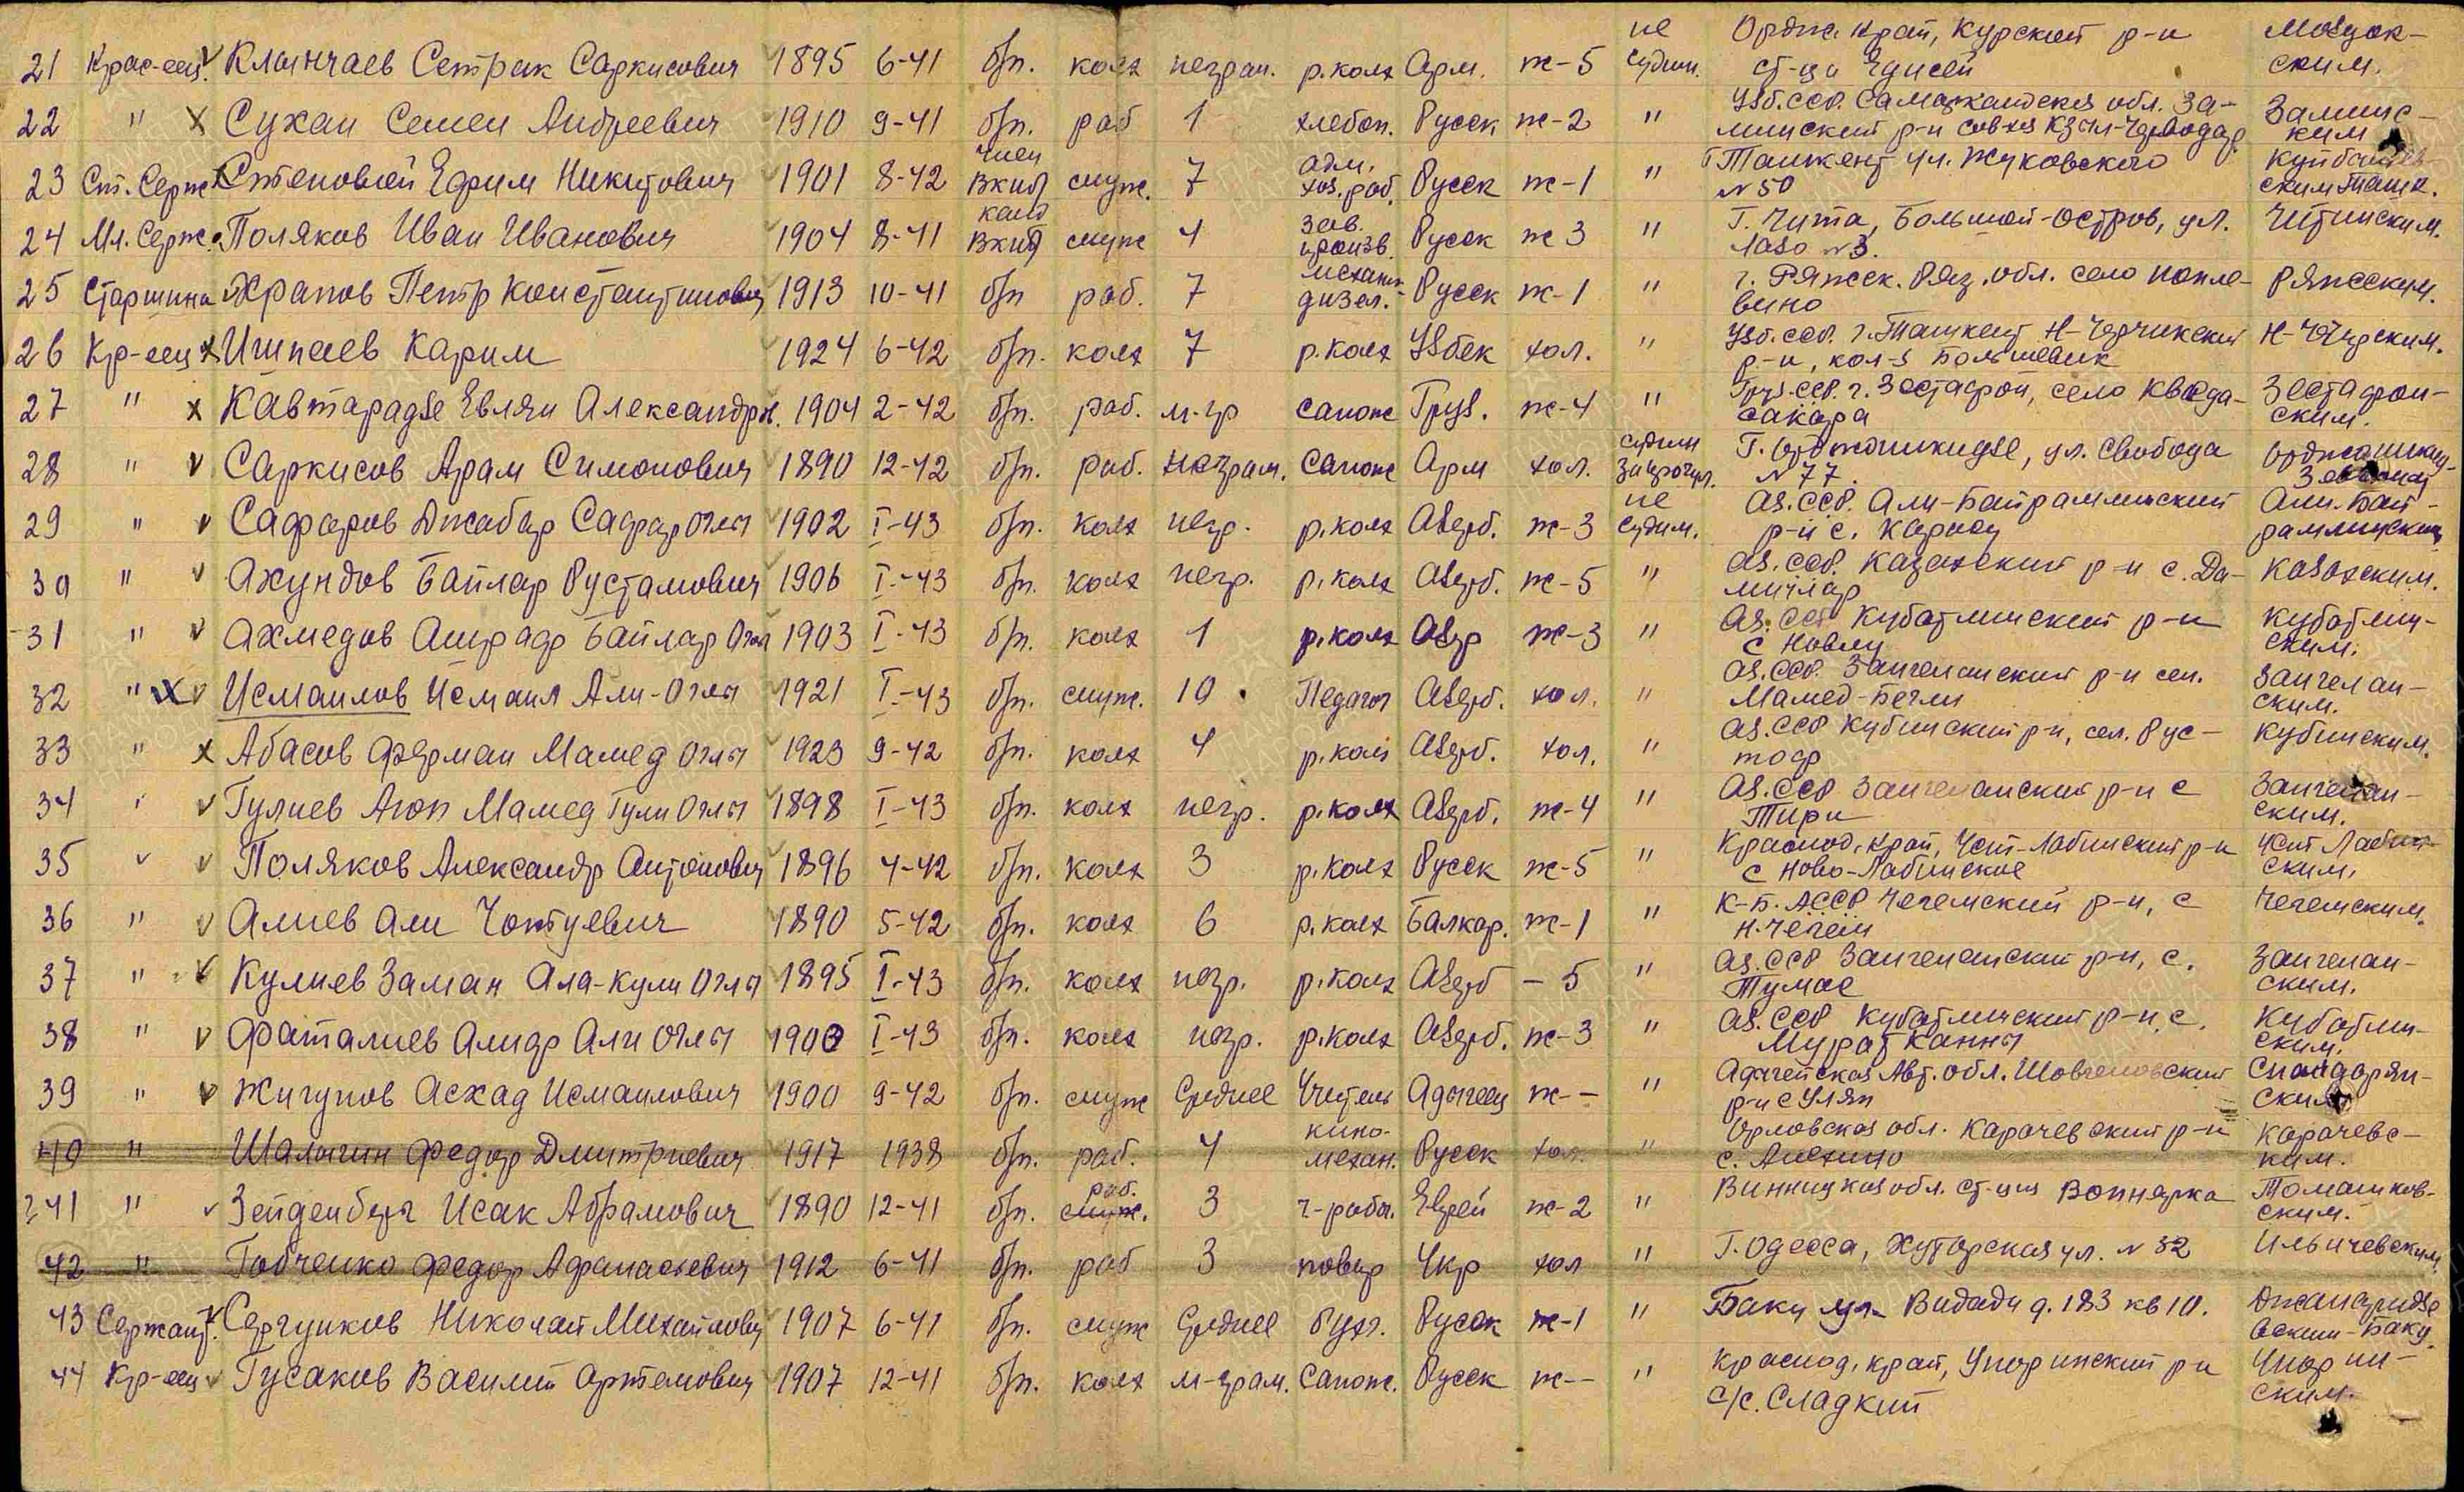 21 Крас-еец. Клынчаев Сетрак Саркисович 1895 6-41 б/п. колх неграм. р.колх Арм. ж-5 не судим. Ордж. край, Курский р-н ст-ца Эдисей Моздок-ским.
22 " Сухан Семен Андреевич 1910 9-41 б/п. раб 1 хлебоп. Русск ж-2 " Узб.ССР. Самаркандская обл. За-минский р-н совхз Зааминс-ким
23 Ст. Серж. Степовой Ефим Никитович 1901 8-42 член ВКПб служ. 7 адм. хоз. раб. Русск ж-1 " г Ташкент ул. Жуковского №50 Куйбышев-ским Ташк.
24 Мл. Серж. Поляков Иван Иванович 1904 8-41 канд ВКПб служ 4 зав. произв. Русск ж 3 " Г. Чита, Большой-Остров, ул. Лазо №3. Читинским.
25 Старшина Храпов Петр Константинович 1913 10-41 б/п раб. 7 механик дизел. Русск ж-1 " г. Ряжск. Ряз. обл. село Попле-вино Ряжским.
26 Кр-еец Ишпаев Карим 1924 6-42 б/п. колх 7 р.колх Узбек хол. " Узб.ССР. г. Ташкент Н-Чирчикский р-н, кол-з Большевик Н-Чирским.
27 " Кавтарадзе Евляи Александр. 1904 2-42 б/п. раб. м-гр сапож Груз. ж-4 " Груз.ССР. г. Зестафон, село Кведа-сакара Зестафон-ским.
28 " Саркисов Арам Симонович 1890 12-42 б/п. раб. неграм. Сапож Арм хол. судим Г. Орджоникидзе, ул. Свобода №77. Орджоникид-зевским
29 " Сафаров Джабар Сафар Оглы 1902 I-43 б/п. колх негр. р.колх Азерб. ж-3 не судим. Аз.ССР. Али-Байрамлинский р-н с. Али-Бай-рамлинским
30 " Ахундов Байлар Рустамович 1906 I-43 б/п. колх негр. р.колх Азерб. ж-5 " Аз.ССР. Казахский р-н с. Да-мичлар Казахским.
31 " Ахмедов Ашраф Байлар Оглы 1903 I-43 б/п. колх 1 р.колх Азер ж-3 " Аз.ССР Кубатлинский р-н с Новлу Кубатлин-ским.
32 " Исмаилов Исмаил Али-Оглы 1921 I-43 б/п. служ. 10 Педагог Азерб. хол. " Аз.ССР. Зангеланский р-н сел. Мамед-Бегли Зангелан-ским.
33 " Абасов Ферман Мамед Оглы 1923 9-42 б/п. колх 4 р.колх Азерб. хол. " Аз.ССР Кубинский р-н, сел. Рус-тоф Кубинским.
34 " Гулиев Агоп Мамед Гули Оглы 1898 I-43 б/п. колх негр. р.колх Азерб. ж-4 " Аз.ССР Зангеланский р-н с Тири Зангелан-ским.
35 " Поляков Александр Антонович 1896 4-42 б/п. колх 3 р.колх Русск ж-5 " Краснод. край, Уст-Лабинский р-н с Ново-Лабинское Уст Лабин-ским.
36 " Алиев Али Чоктуевич 1890 5-42 б/п. колх 6 р.колх Балкар. ж-1 " К-Б. АССР Чегемский р-н, с Н.Чегем Чегемским.
37 " Кулиев Заман Ала-Кули Оглы 1895 I-43 б/п. колх негр. р.колх Азерб - 5 " Аз.ССР Зангеланский р-н, с. Тумас Зангелан-ским.
38 " Фаталиев Алиф Али Оглы 1903 I-43 б/п. колх негр. р.колх Азерб. ж-3 " Аз.ССР Кубатлинский р-н, с. Мурат Канны Кубатлин-ским.
39 " Жигунов Асхад Исмаилович 1900 9-42 б/п. служ Среднее Учитель Адыгеец ж-- " Адыгейская Авт. обл. Шовгеновский р-н с Уляп
40 " Шалыгин Федор Дмитриевич 1917 1938 б/п. раб. 4 кино-механ. Русск хол. " Орловская обл. Карачевский р-н с. Анехино Карачевс-ким.
41 " Зейденберг Исак Абрамович 1890 12-41 б/п. раб. служ. 3 ч-рабоч. Еврей ж-2 " Винницкая обл. ст-ция Вопнярка Томашков-ским.
42 " Бабченко Федор Афанасьевич 1912 6-41 б/п. раб 3 повар Укр хол " Г. Одесса, Хуторская ул. №32 Ильичевским
43 Сержант. Сергунков Николай Михайлович 1907 6-41 б/п. служ Среднее бухг. Русск ж-1 " Баку ул. Видади д. 183 кв 10. Джапаридзевским-Баку
44 Кр-еец Гусаков Василий Артемович 1907 12-41 б/п. колх м-грам. Сапож. Русск ж-- " Краснод. край, Упоринский р-н с/с. Сладкий Упорин-ским.